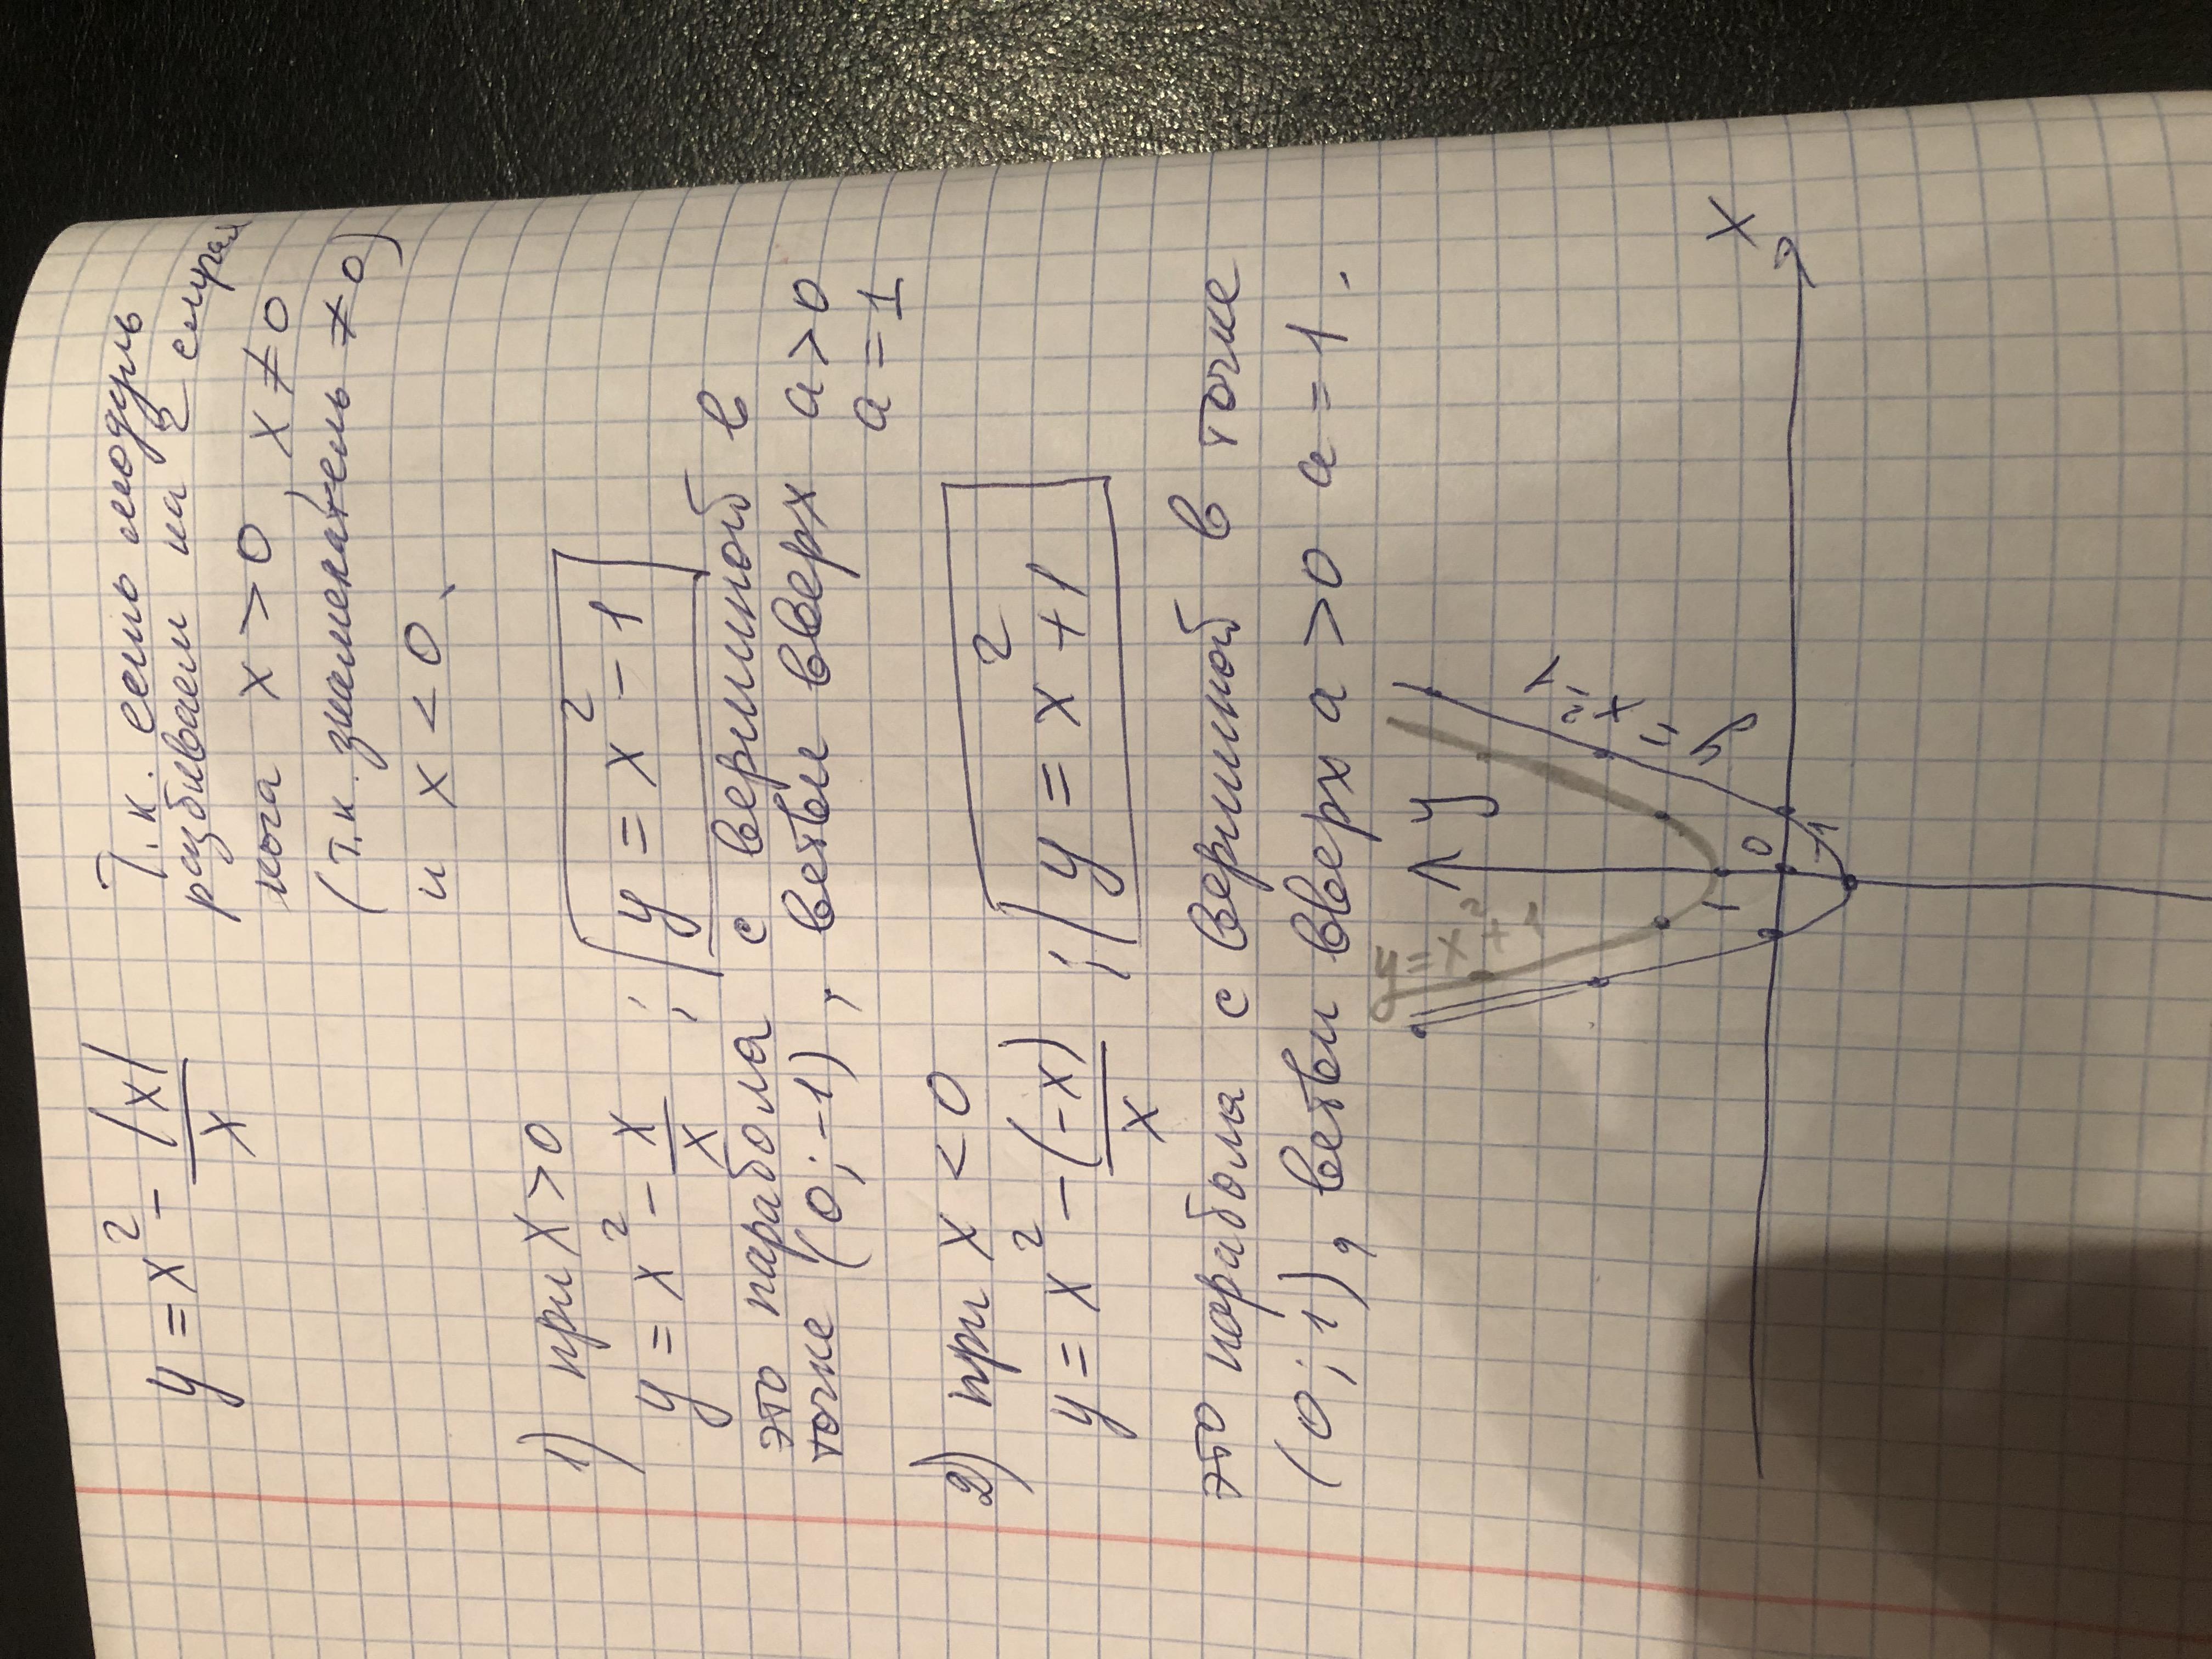 y = x² - |x|/x
Т.к. есть модуль
разбиваем на 2 случая
когда x > 0 x ≠ 0
(т.к. знаменатель ≠ 0)
и x < 0.
1) при x > 0
y = x² - x/x ; y = x² - 1
это парабола с вершиной в
точке (0; -1), ветви вверх a > 0
a = 1
2) при x < 0
y = x² - (-x)/x ; y = x² + 1
это парабола с вершиной в точке
(0; 1), ветви вверх a > 0 a = 1.
y
y = x² + 1
y = x² - 1
1
0
-1
x